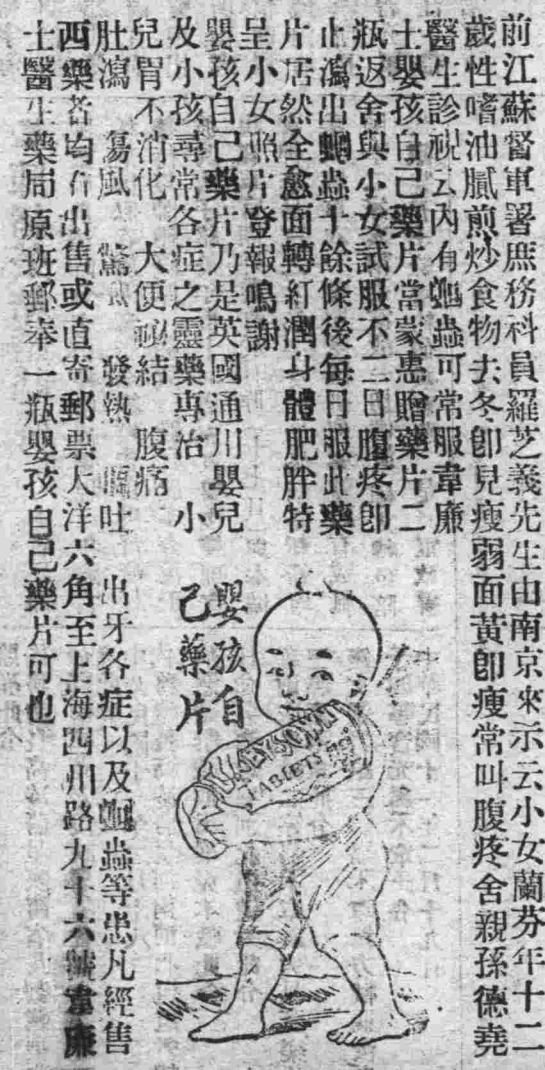 前江蘇督軍署庶務科員羅芝義先生由南京來示云小女蘭芬年十二
歲性嗜油膩煎炒食物去冬卽見瘦弱面黃卽瘦常叫腹疼舍親孫德堯
醫生診視云內有蛔蟲可常服韋廉
士嬰孩自己藥片當蒙惠贈藥片二
瓶返舍與小女試服不二日腹疼卽
止瀉出蛔蟲十餘條後每日服此藥
片居然全愈面轉紅潤身體肥胖特
呈小女照片登報鳴謝
嬰孩自己藥片乃是英國通用嬰兒
及小孩尋常各症之靈藥專治 小
兒胃不消化 大便祕結 腹痛
肚瀉 傷風 驚風 發熱 吐 出牙各症以及蛔蟲等患凡經售
西藥者均有出售或直寄郵票大洋六角至上海四川路九十六號韋廉
士醫生藥局原班郵奉一瓶嬰孩自己藥片可也
嬰孩自
己藥片
BABY'S OWN
TABLETS